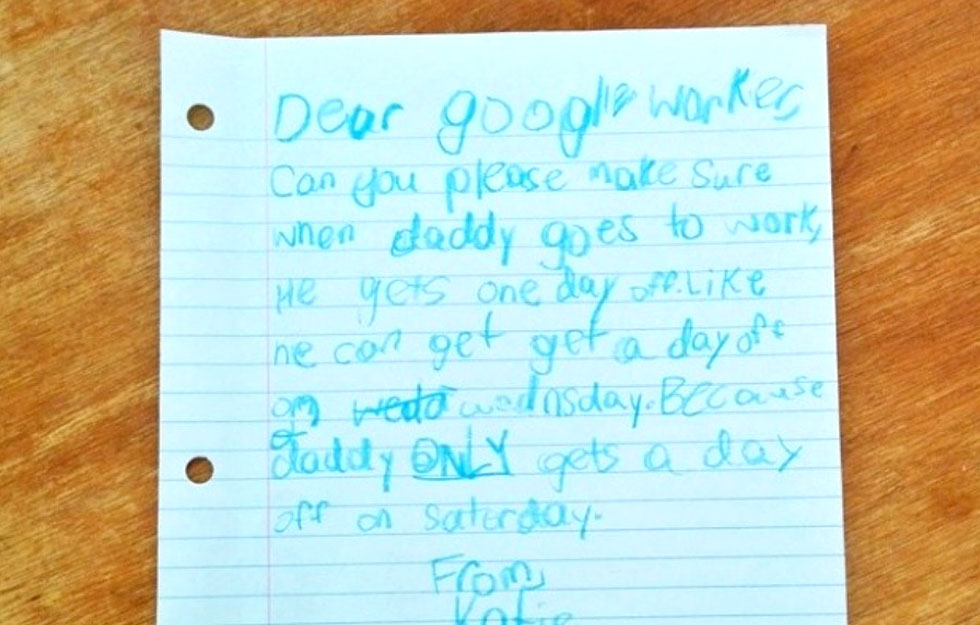 Dear google worker,
Can you please make sure
when daddy goes to work,
He gets one day off. Like
he can get get a day off
on wednsday. Because
daddy ONLY gets a day
off on saterday.
From,
Katie